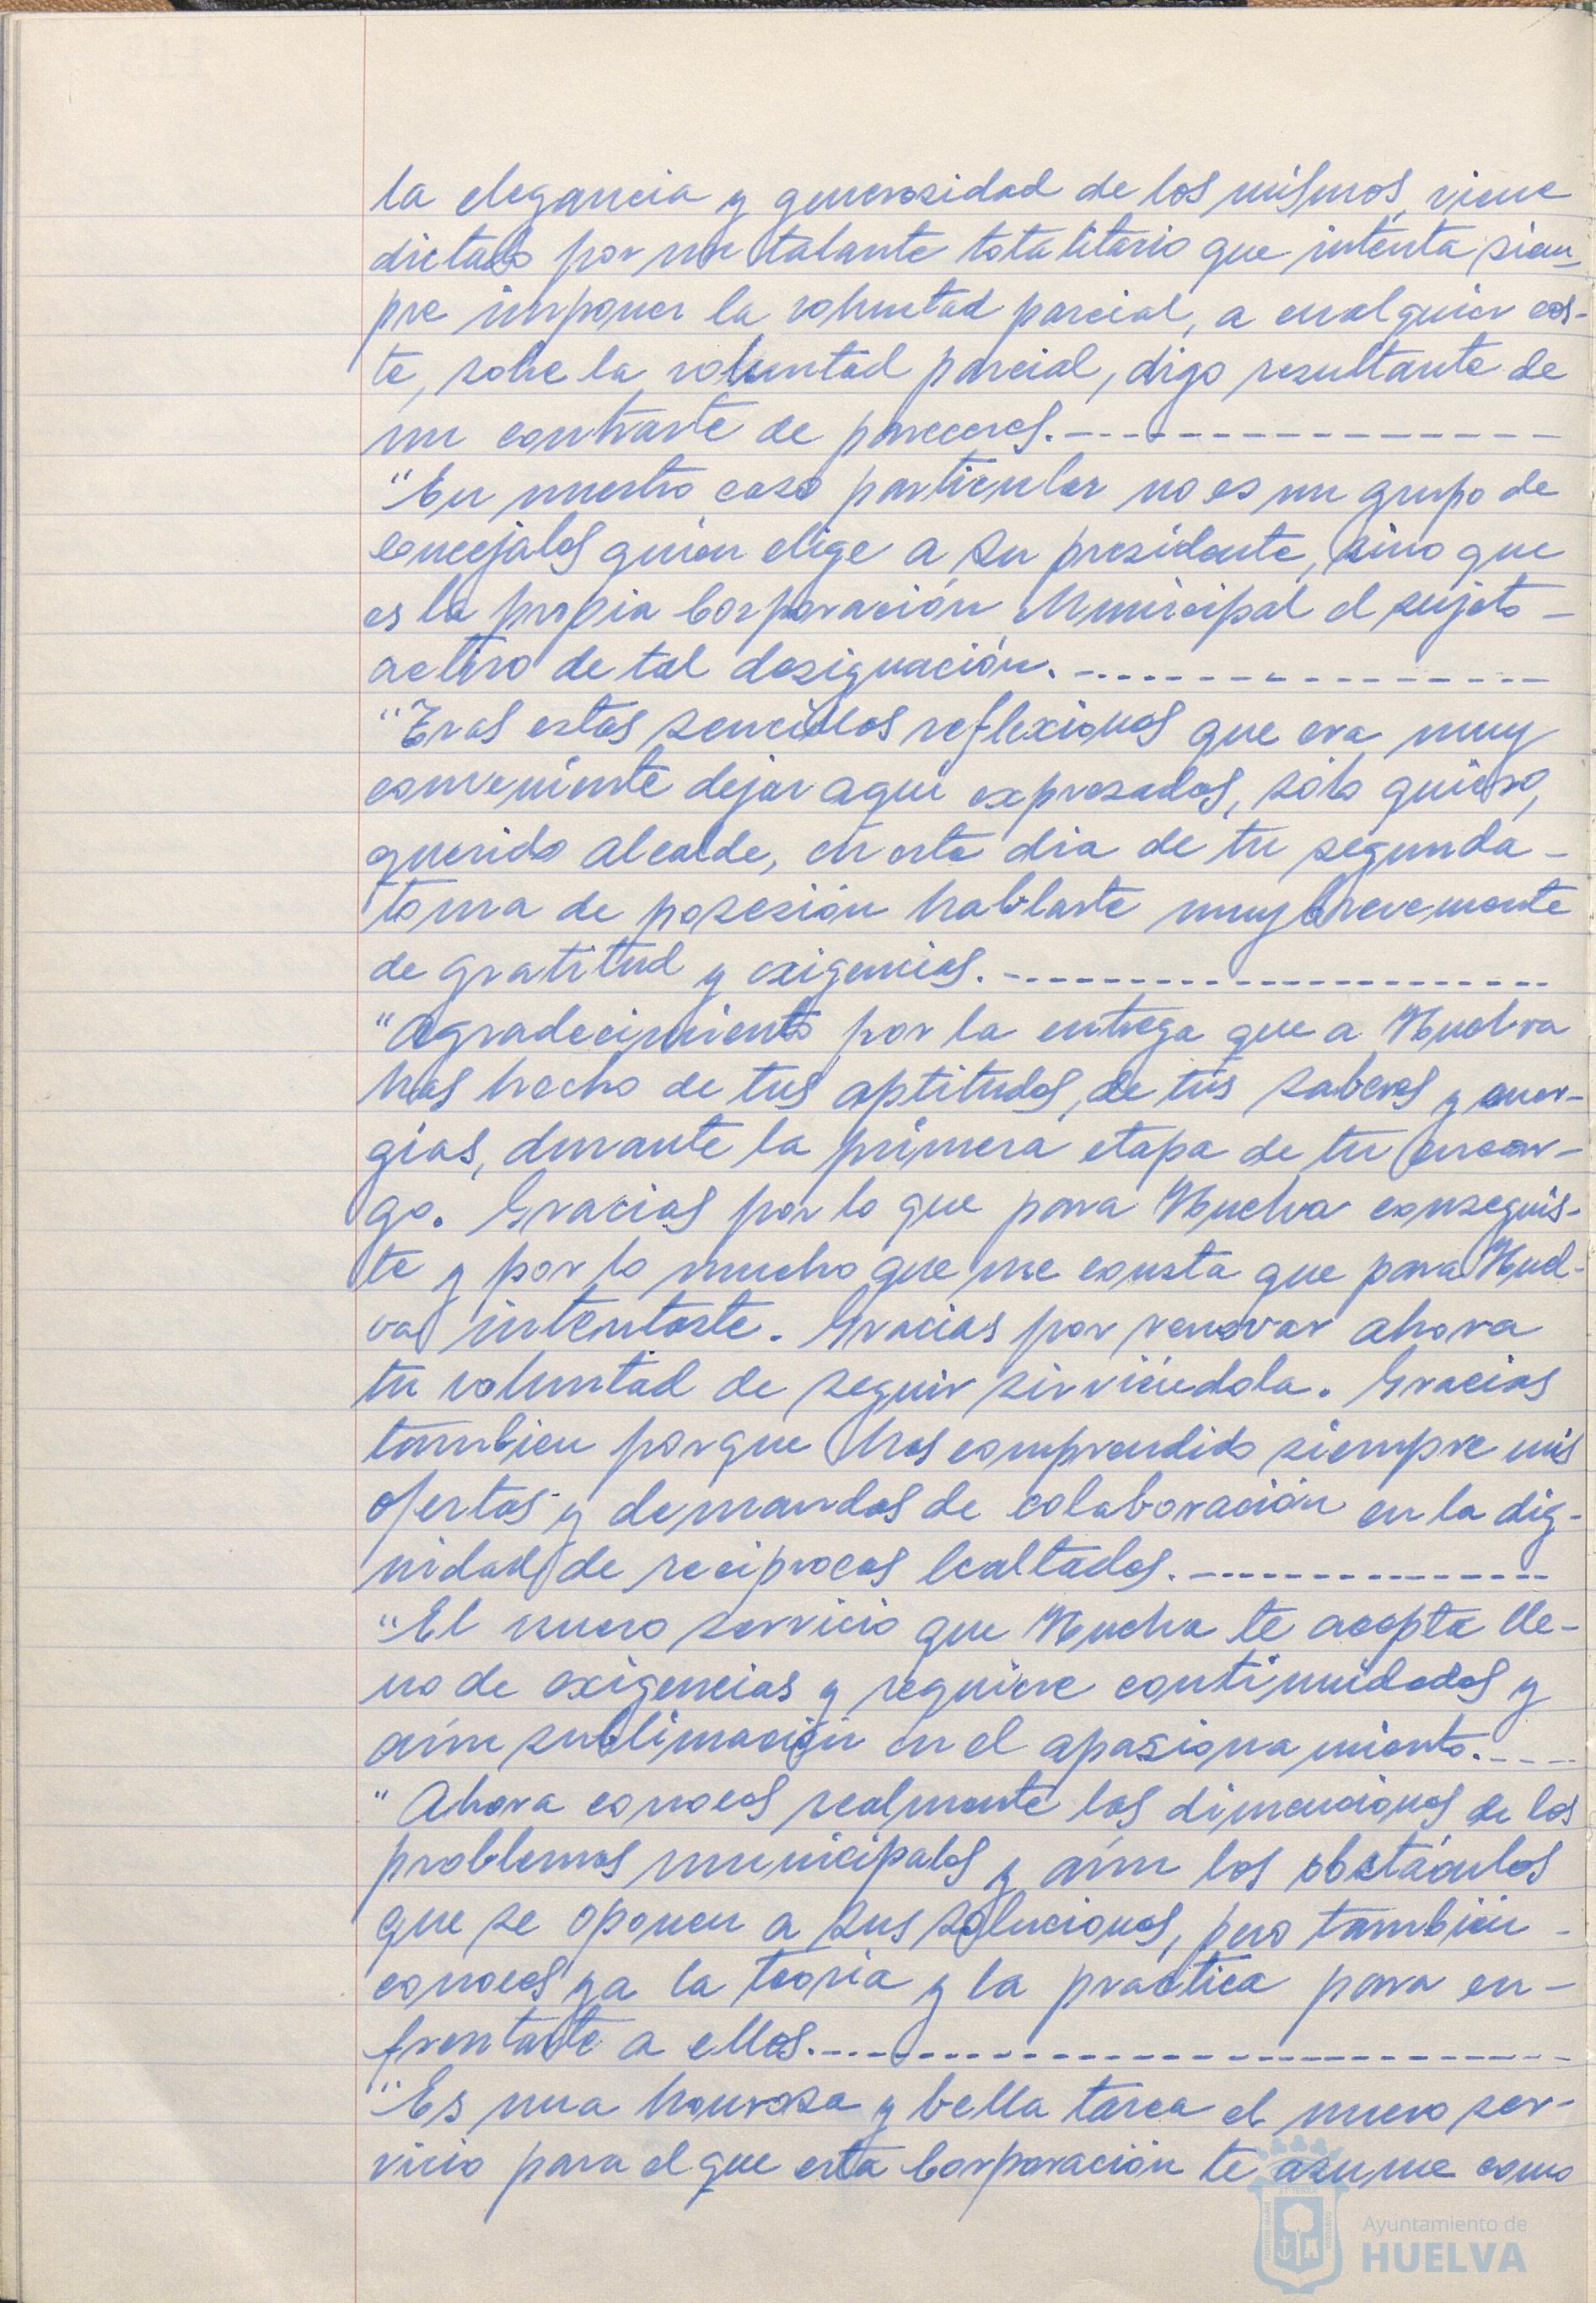 la elegancia y generosidad de los mismos, viene
dictado por un talante totalitario que intenta siem-
pre imponer la voluntad parcial, a cualquier cos-
te, sobre la voluntad parcial, digo resultante de
un contraste de pareceres.
"En nuestro caso particular no es un grupo de
concejales quien elige a su presidente, sino que
es la propia Corporación Municipal el sujeto -
activo de tal designación.
"Tras estas sencillas reflexiones que era muy
conveniente dejar aquí expresadas, sólo quiero,
querido alcalde, en este dia de tu segunda -
toma de posesión hablarte muy brevemente
de gratitud y exigencias.
"Agradecimiento por la entrega que a Huelva
has hecho de tus aptitudes, de tus saberes y ener-
gías, durante la primera etapa de tu encar-
go. Gracias por lo que para Huelva conseguis-
te y por lo mucho que me consta que para Huel-
va intentaste. Gracias por renovar ahora
tu voluntad de seguir sirviéndola. Gracias
tambien porque has comprendido siempre mis
ofertas y demandas de colaboración en la dig-
nidad de reciprocas lealtades.
"El nuevo servicio que Huelva te acepta lle-
no de exigencias y requiere continuidades y
aún sublimación en el apasionamiento.
"Ahora conoces realmente las dimensiones de los
problemas municipales y aún los obstáculos
que se oponen a sus soluciones, pero también -
conoces ya la teoria y la practica para en-
frentarte a ellos.
"Es una honrosa y bella tarea el nuevo ser-
vicio para el que esta Corporación te asume como
Ayuntamiento de
HUELVA